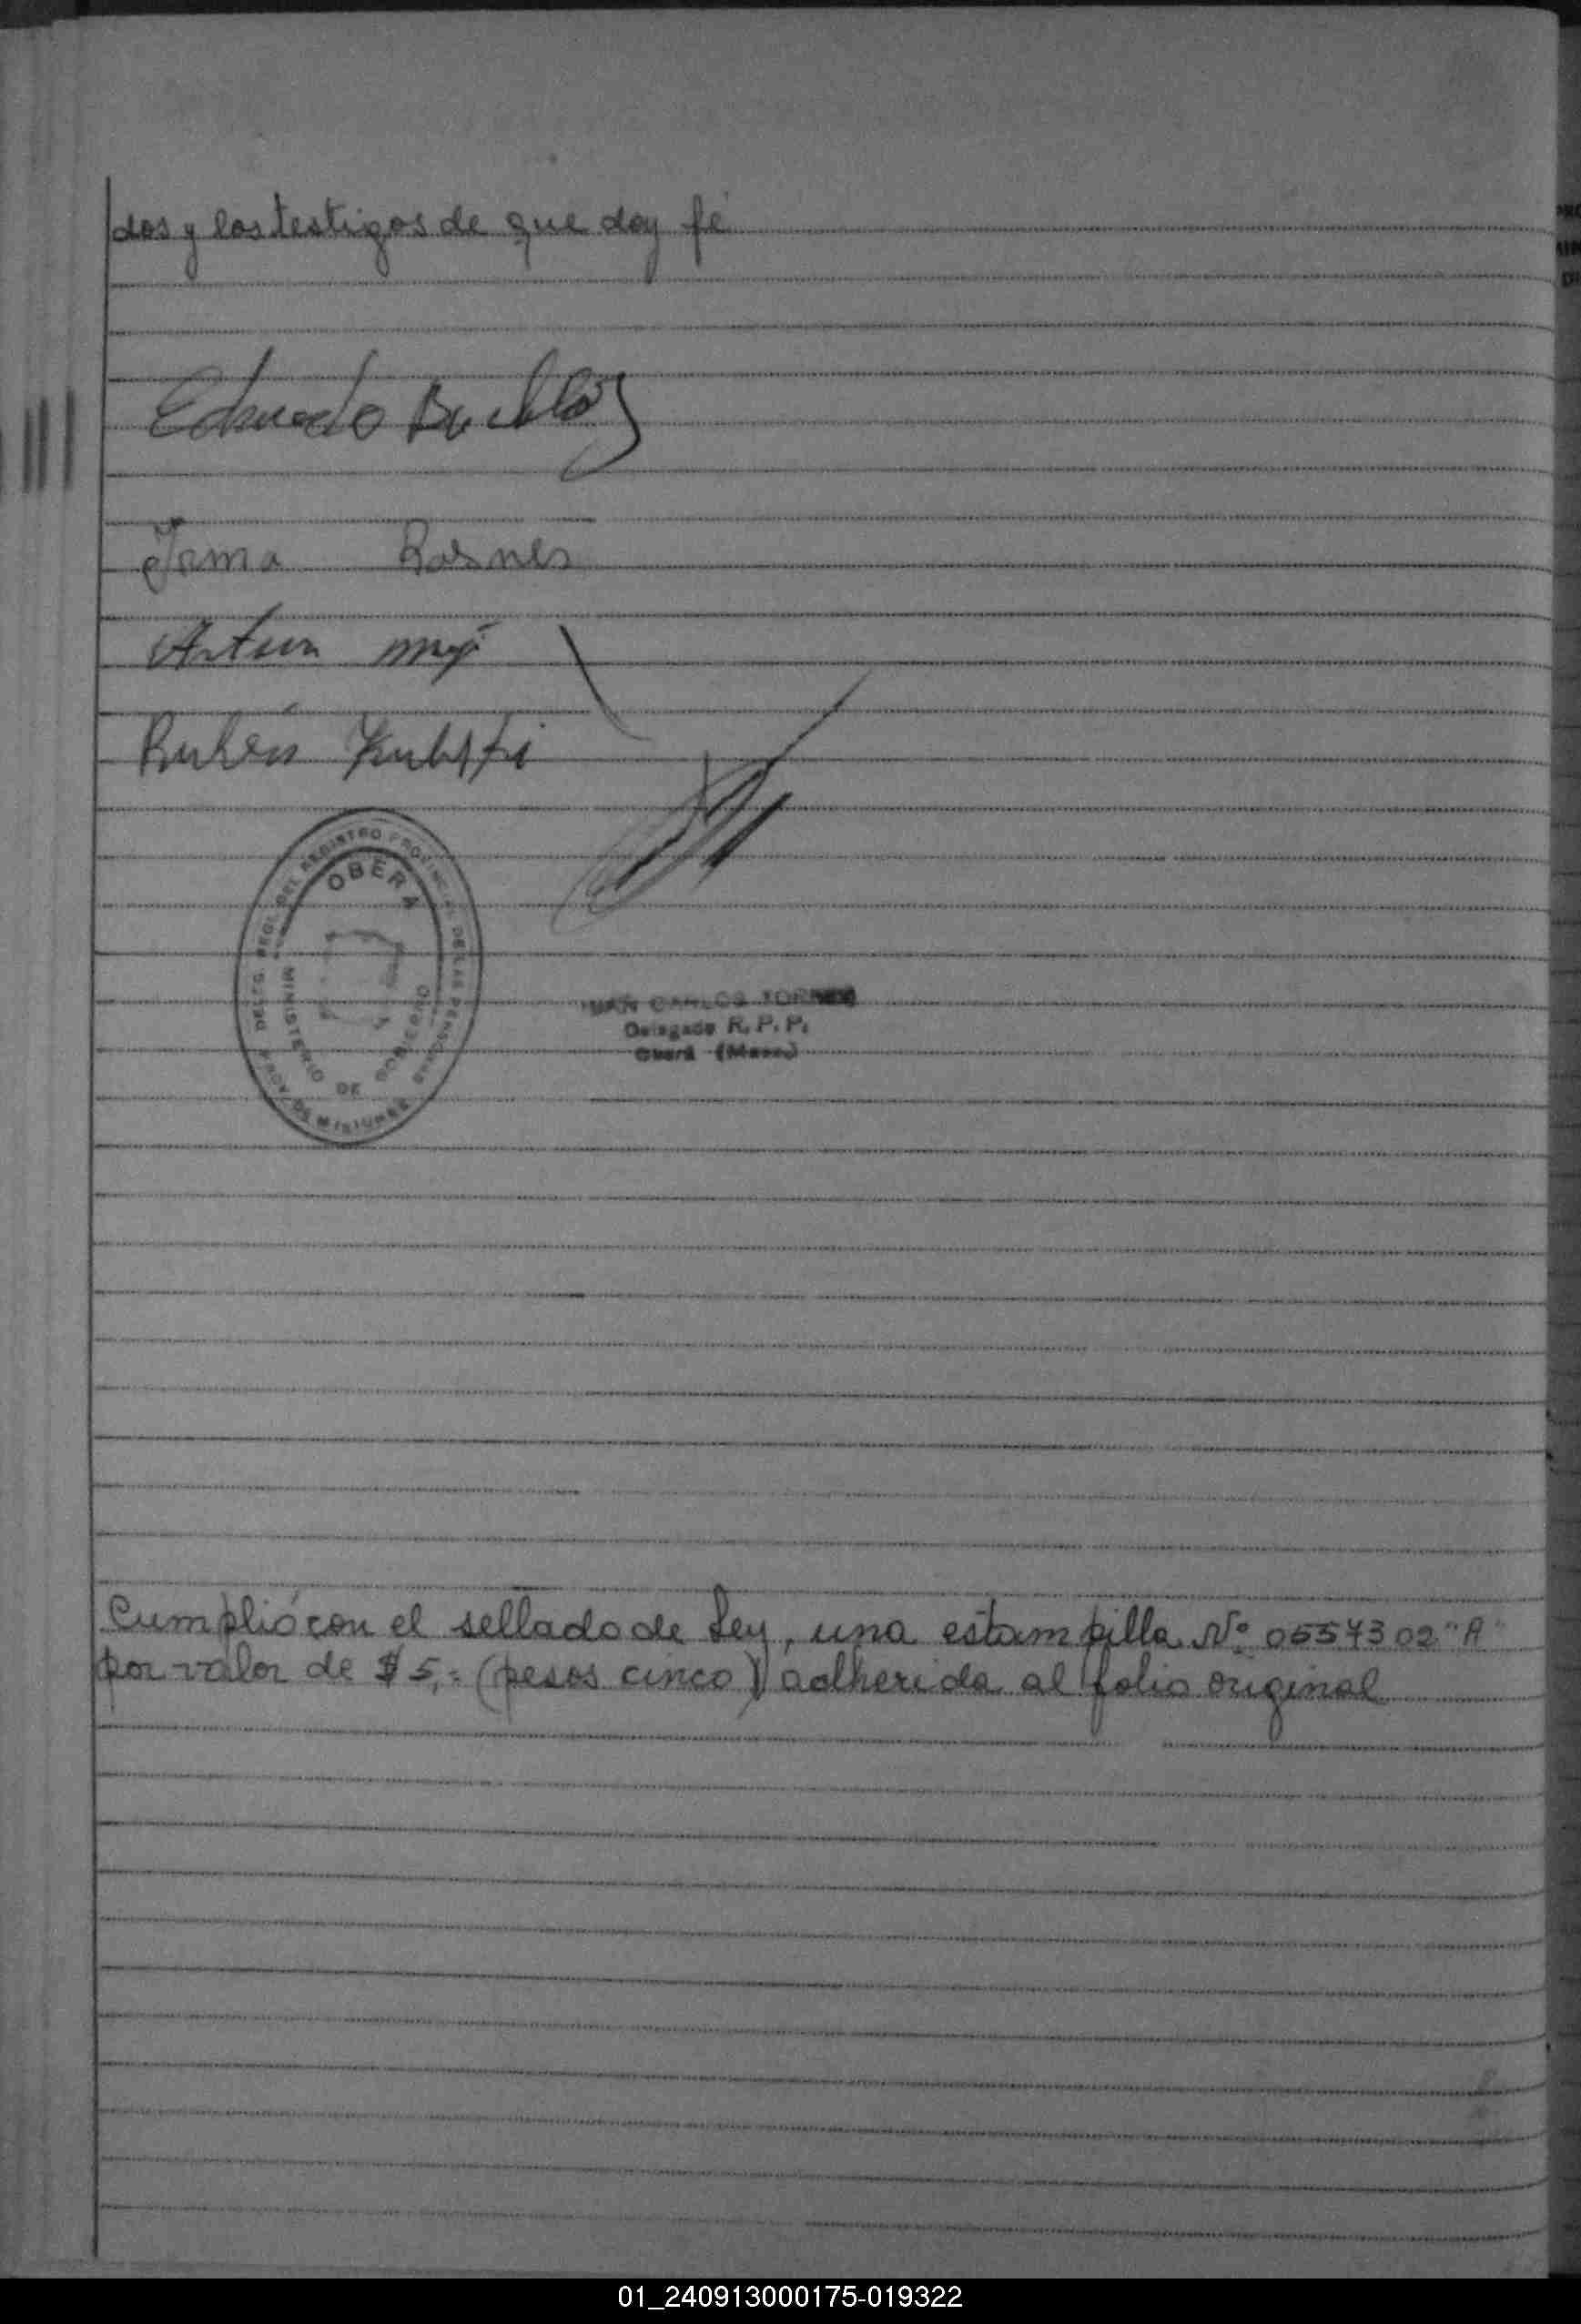 dos y los testigos de que doy fé
Eduardo
Irma Rosner
Arturo
Rubén
DELEG. REGL. DEL REGISTRO PROVINCIAL DE LAS PERSONAS
OBERA
MINISTERIO DE GOBIERNO
DE MISIONES
JUAN CARLOS TORRES
Delegado R. P. P.
Oberá (Mnes.)
Cumplió con el sellado de Ley, una estampilla Nº 0557302 "A"
por valor de $ 5,= (pesos cinco) adherida al folio original
01_240913000175-019322